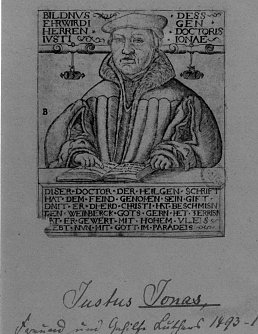 BILDNVS DESS
EHRWIRDIGEN
HERREN DOCTORIS
IVSTI IONAE
B
DISER · DOCTOR · DER · HEILGEN · SCHRIFT
HAT · DEM · FEIND · GENOMEN · SEIN · GIFT
DMIT · ER · DI · ERD · CHRISTI · HAT · BESCHMISN
GEN · WEINBERCK · GOTS · GERN · HET · ZERRISN
HAT · ER · GEWERT · MIT · HOHEM · VLEIS
LEBT · NVN · MIT · GOTT · IM · PARADEIS
Justus Jonas
Freund und Gehilfe Luthers 1493-1